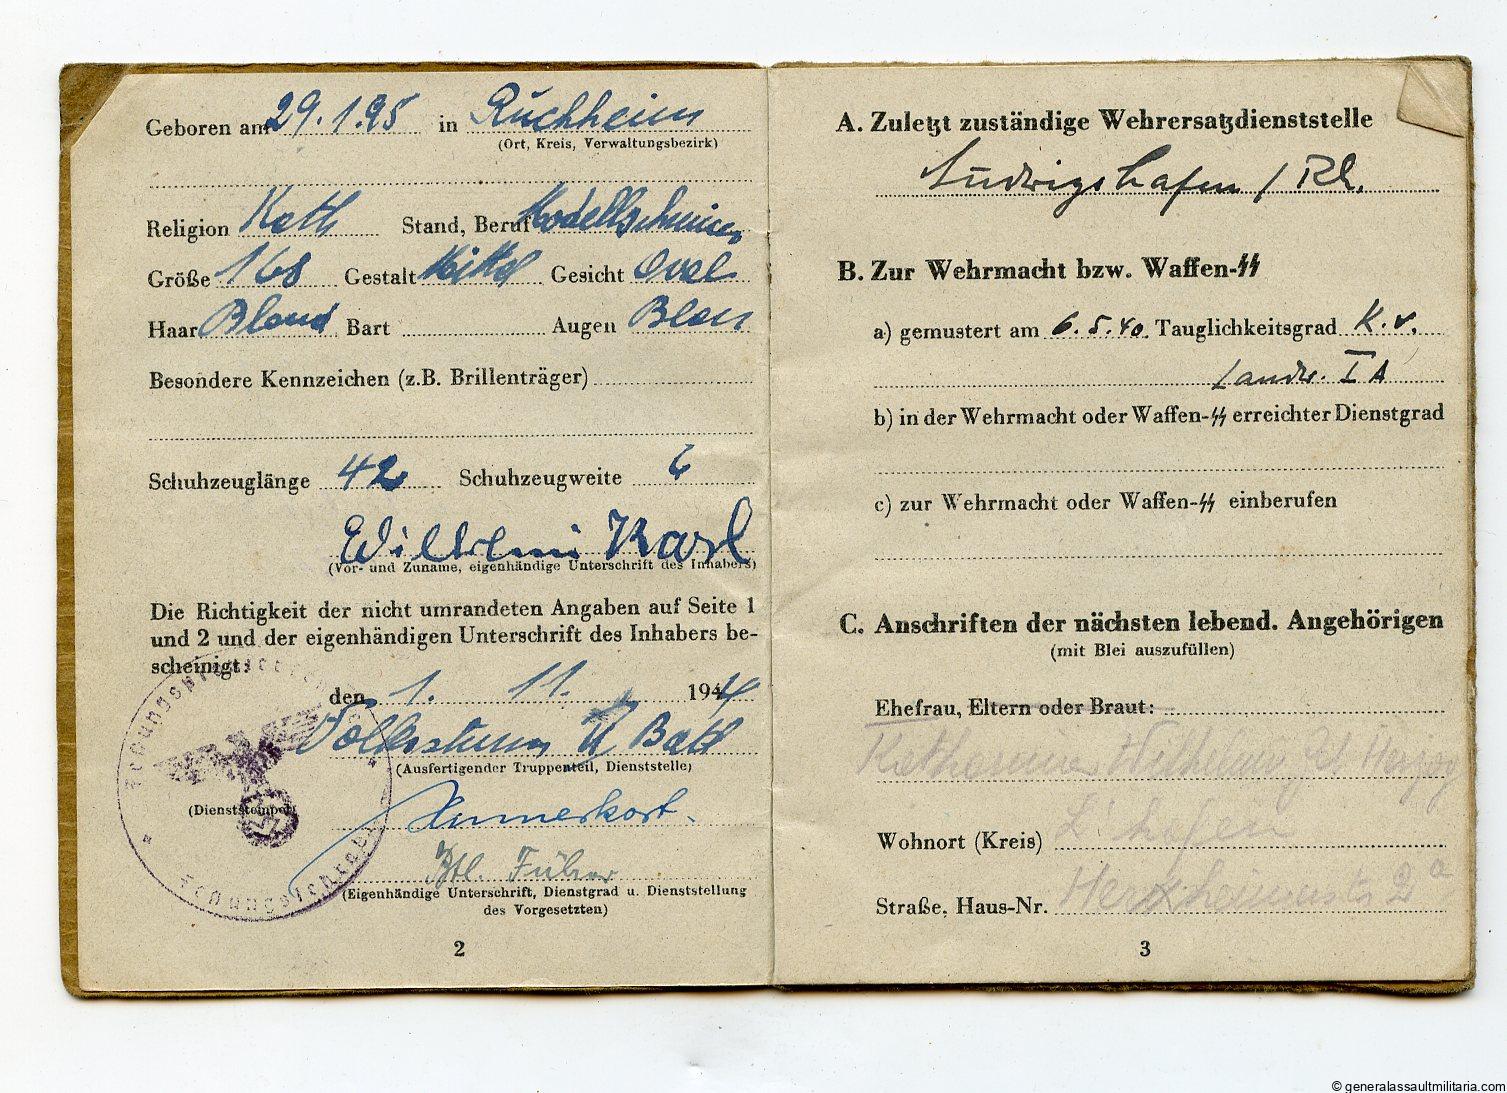 Geboren am 29.1.95 in Ruchheim
(Ort, Kreis, Verwaltungsbezirk)
Religion Kath Stand, Beruf Modellschreiner
Größe 168 Gestalt Mittel Gesicht Oval
Haar Blond Bart Augen Blau
Besondere Kennzeichen (z.B. Brillenträger)
Schuhzeuglänge 42 Schuhzeugweite 6
Wilhelm Karl
(Vor- und Zuname, eigenhändige Unterschrift des Inhabers)
Die Richtigkeit der nicht umrandeten Angaben auf Seite 1
und 2 und der eigenhändigen Unterschrift des Inhabers be-
scheinigt:
den 1. 11. 1944
Volkssturm Batl
(Ausfertigender Truppenteil, Dienststelle)
(Dienststempel)
Btl. Führer
(Eigenhändige Unterschrift, Dienstgrad u. Dienststellung
des Vorgesetzten)
2
A. Zuletzt zuständige Wehrersatzdienststelle
Ludwigshafen / Rh.
B. Zur Wehrmacht bzw. Waffen-ᛋᛋ
a) gemustert am 6.5.40. Tauglichkeitsgrad K.v.
Landw. I A
b) in der Wehrmacht oder Waffen-ᛋᛋ erreichter Dienstgrad
c) zur Wehrmacht oder Waffen-ᛋᛋ einberufen
C. Anschriften der nächsten lebend. Angehörigen
(mit Blei auszufüllen)
Ehefrau, Eltern oder Braut:
Herzog
Wohnort (Kreis) L'hafen
Straße, Haus-Nr. Herxheimerstr 2a
3
© generalassaultmilitaria.com